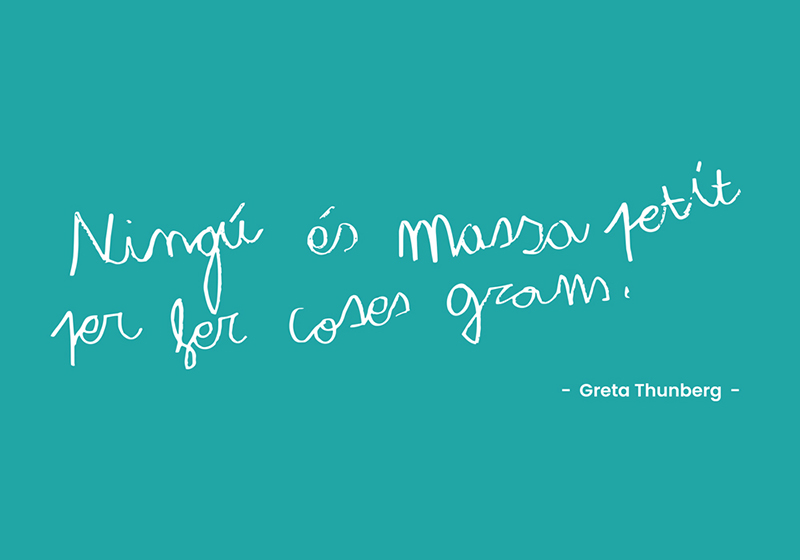 Ningú és massa petit
per fer coses grans.
- Greta Thunberg -